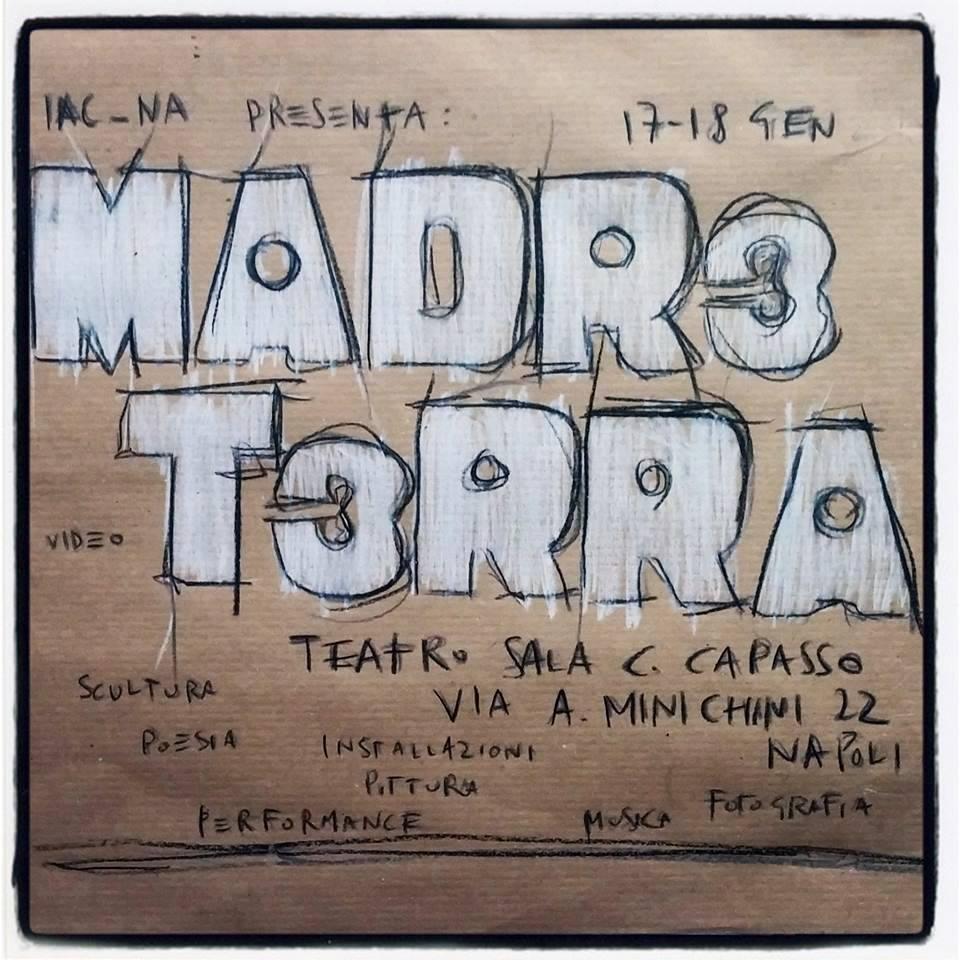 IAC_NA PRESENTA: 17-18 GEN
MADR3
T3RRA
VIDEO
TEATRO SALA C. CAPASSO
SCULTURA
VIA A. MINICHINI 22
POESIA INSTALLAZIONI NAPOLI
PITTURA
PERFORMANCE MUSICA FOTOGRAFIA